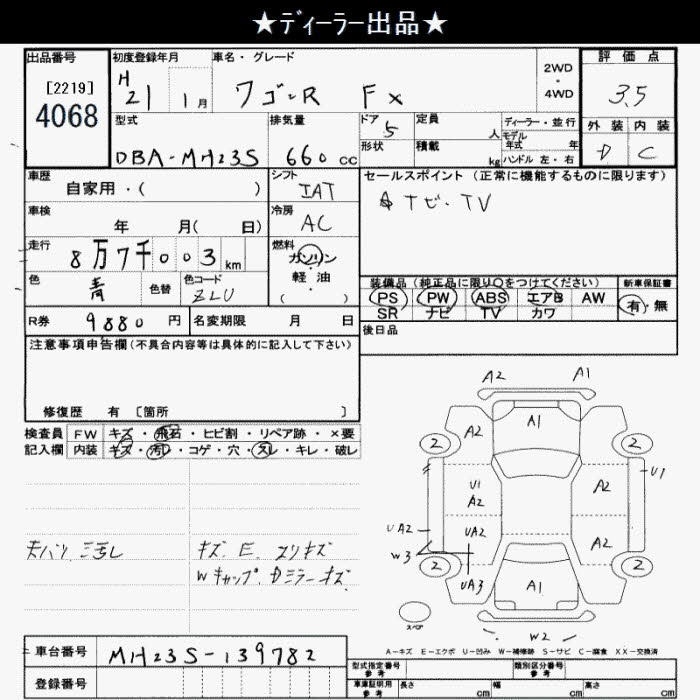 ★ディーラー出品★
出品番号
[2219]
4068
初度登録年月
H 21 1月
車名・グレード
ワゴンR FX
2WD
・
4WD
評価点
3.5
型式
DBA-MH23S
排気量
660 cc
ドア 5
形状
定員 人
積載 kg
ディーラー・並行
モデル年式 年
ハンドル 左・右
外装 内装
D C
車歴
自家用・( )
シフト
IAT
セールスポイント (正常に機能するものに限ります)
ナビ・TV
車検
年 月( 日)
冷房
AC
走行
8万7千003 km
燃料
ガソリン
・
軽油
( )
色
青
色替
色コード
ZLU
装備品 (純正品に限り○をつけてください)
新車保証書
PS PW ABS エアB AW
有・無
SR ナビ TV カワ
R券 9880 円 名変期限 月 日
後日品
注意事項申告欄(不具合内容等は具体的に記入して下さい)
修復歴 有 [箇所 ]
検査員 FW キズ・飛石・ヒビ割・リペア跡・×要
記入欄 内装 キズ・汚レ・コゲ・穴・スレ・キレ・破レ
A2 A1
A1
A2
2 2
U1
U1
A2
A2
UA2
UA2
W3
A2
2 2
UA3
A1
スペア
W2
キズ E スリキズ
Wキャップ Dミラーキズ
A-キズ E-エクボ U-凹み W-補修跡 S-サビ C-腐食 XX-交換済
車台番号 MH23S-139782
登録番号
型式指定番号 参考
類別区分番号 参考
車庫証明用 参考 長さ cm 幅 cm 高さ cm